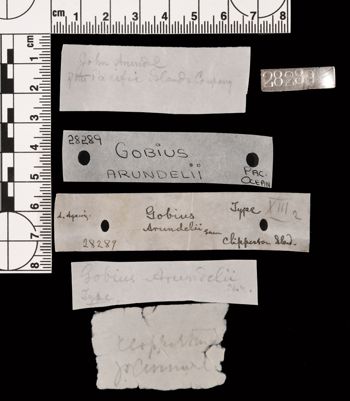 cm 1 2 3 4 5 6 7 8
cm
1
2
3
4
5
6
7
8
John Arundel
Pacific Islands Company
28289
28289
GOBIUS
ARUNDELII
PAC.
OCEAN
Type XIII
Gobius
Arundelii
28289
Clipperton Isld.
Gobius Arundelii
Type